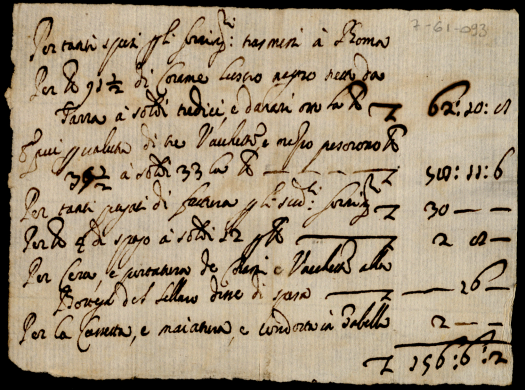 7-61-093
Per tanti spesi p gli fornim.ti: trasmessi à Roma
Per lb 91½ di Corame lustro negro netto da
Tarra à soldi tredici, e danari otto la lb £ 62:10:8
E più p valuta di tre Vacchette, e mezzo pesorono lb
35½ à soldi 33 la lb £ 58:11:6
Per tanti pagati di fattura p gli sud.ti fornim.ti £ 30 — —
Per lb 4 di spago à soldi 12 p lb £ 2 8 —
Per Cera, e portatura de e Vacchette alla
Bottega del Sellaro di £ — 16 —
Per la Cassetta, e e condotta in Gabella 2 — —
£ 156:6:2